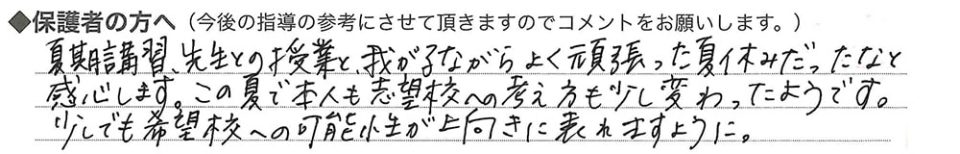 ◆保護者の方へ（今後の指導の参考にさせて頂きますのでコメントをお願いします。）
夏期講習、先生との授業と、我が子ながらよく頑張った夏休みだったなと
感心します。この夏で本人も志望校への考え方も少し変わったようです。
少しでも希望校への可能性が上向きに表れますように。